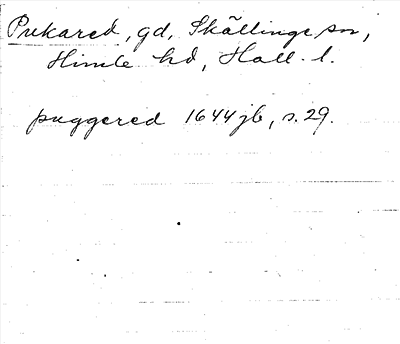 Pukared, gd, Skällinge sn,
Himle hd, Hall. l.
puggered 1644 jb, s. 29.